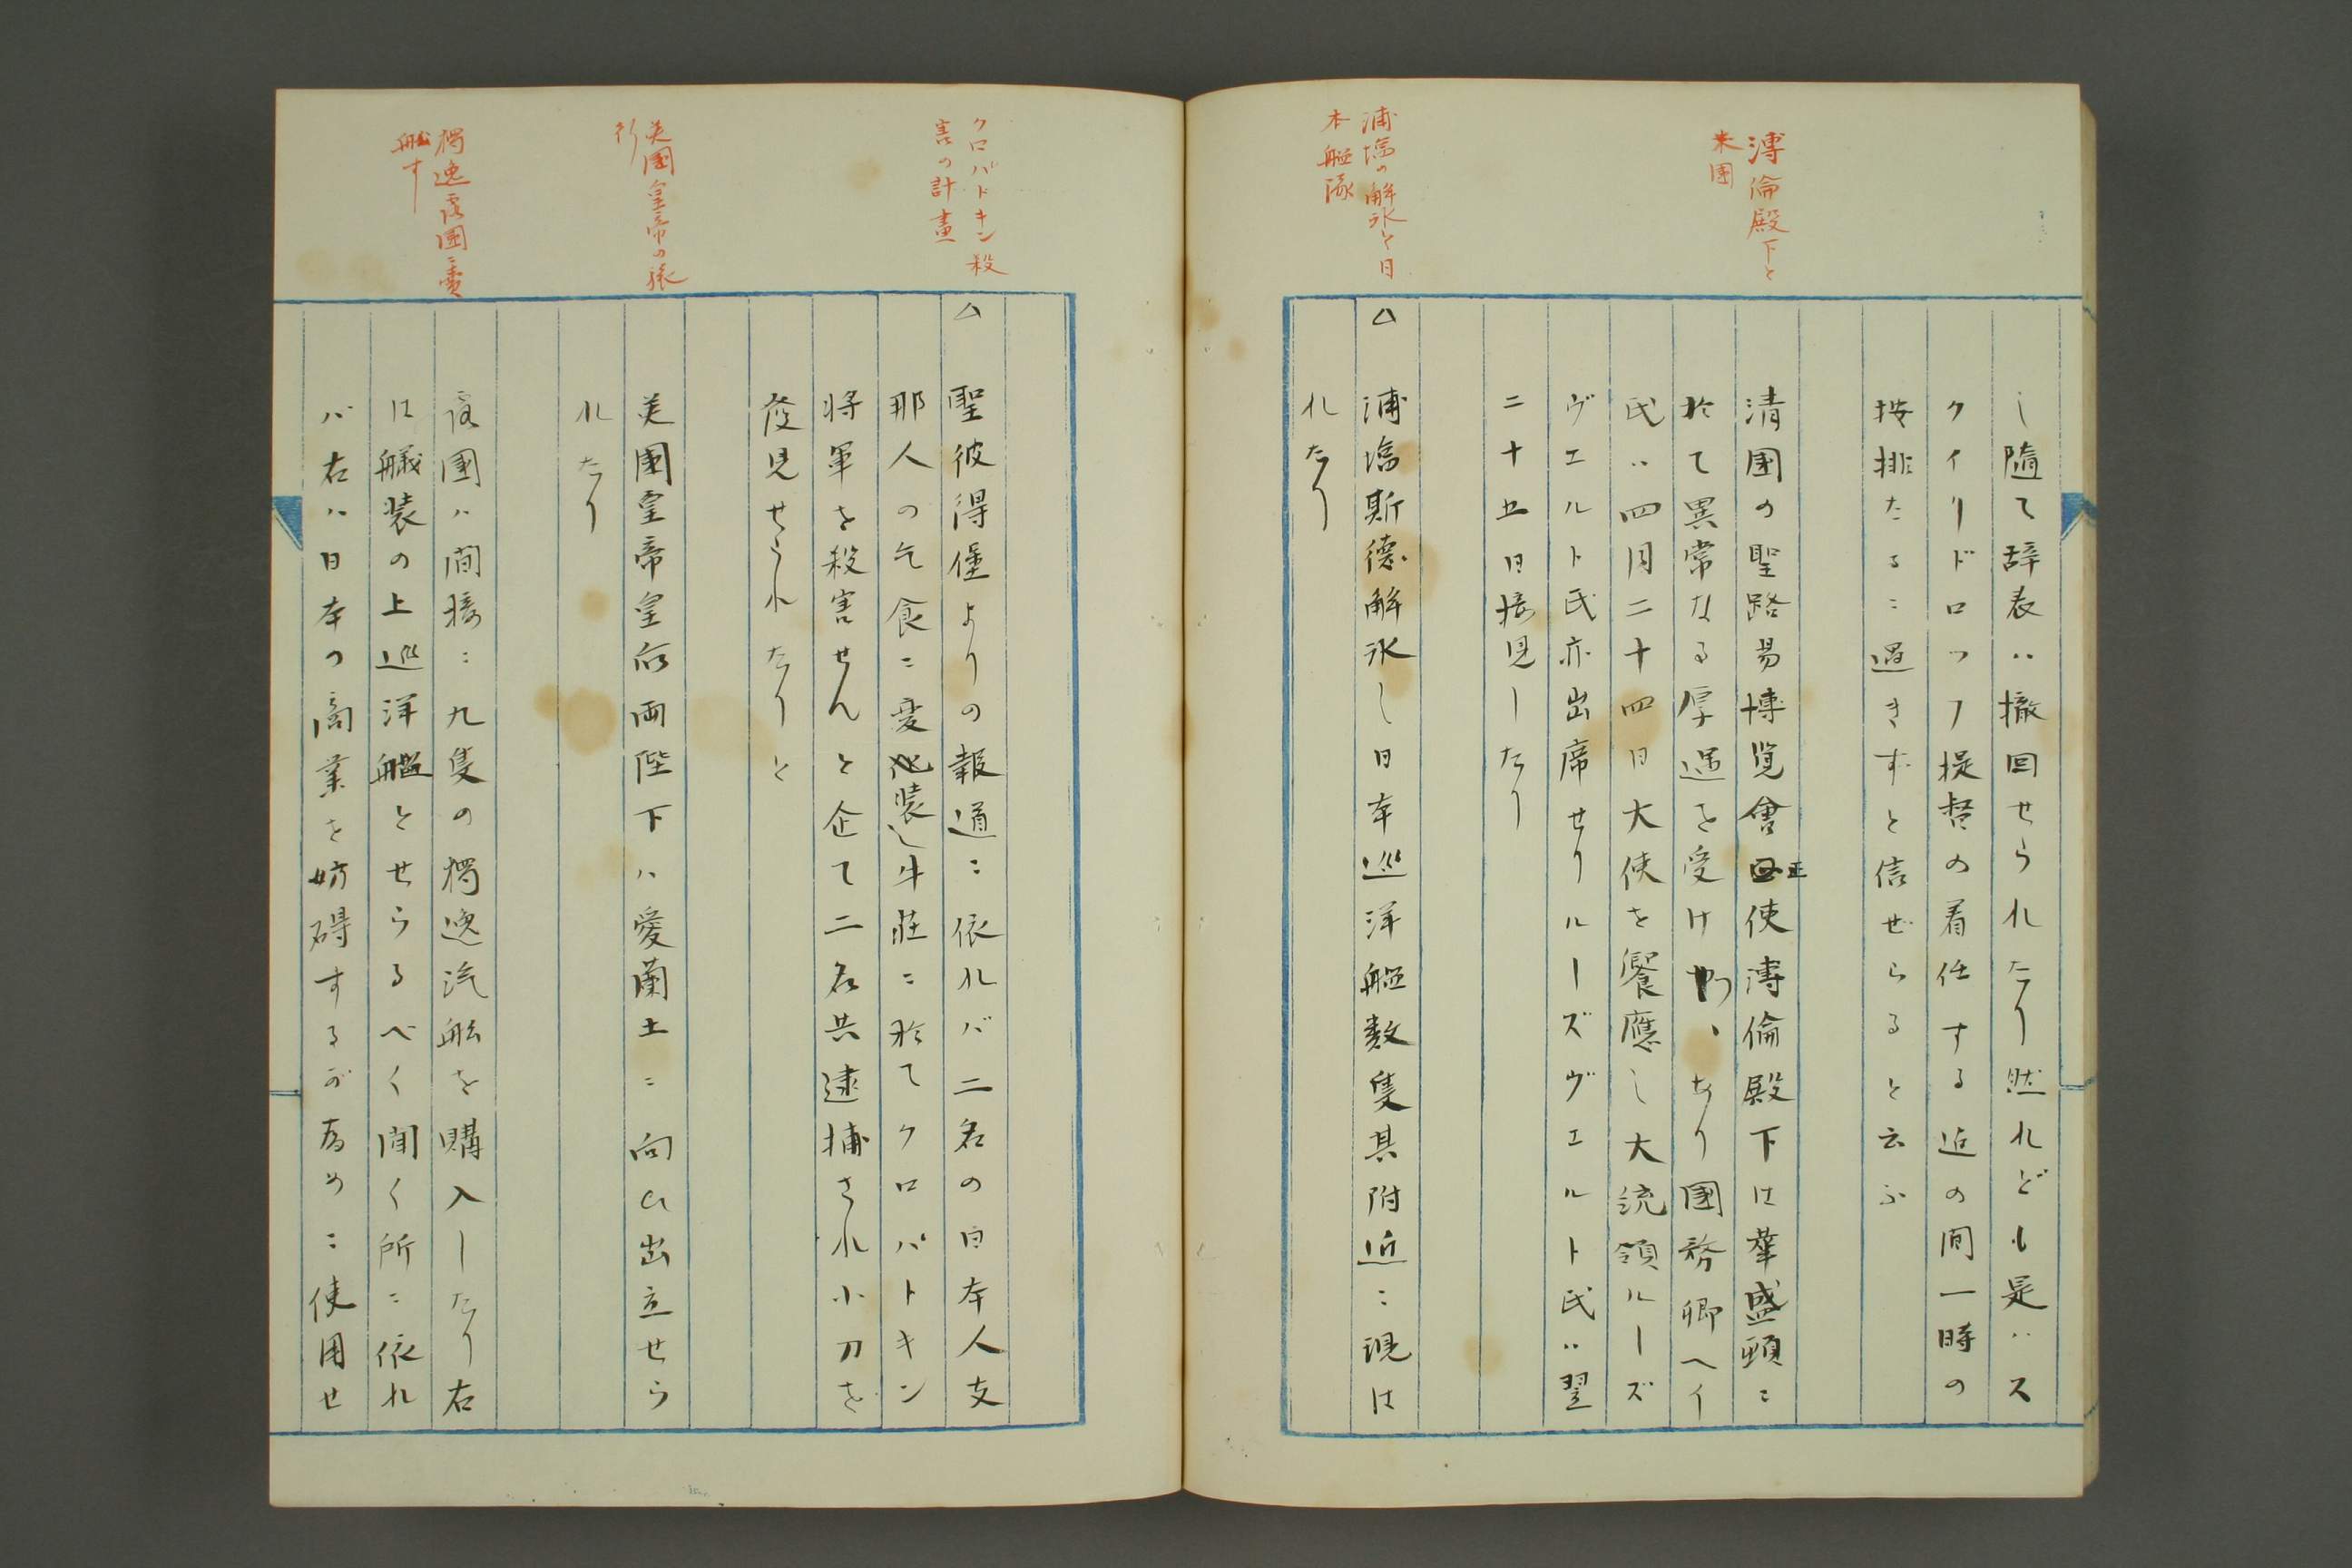 溥倫殿下と
米国
浦塩の解氷と日
本艦隊
し随て辞表ハ撤回せられたり然れども是ハス
クイリドロッフ提督の着任する迄の間一時の
按排たるニ過きずと信ぜらると云ふ
清国の聖路易博覧會正使溥倫殿下は華盛頓ニ
於て異常なる厚遇を受けつゝあり國務卿ヘイ
氏ハ四月二十四日大使を饗應し大統領ルーズ
ヴエルト氏亦出席せりルーズヴエルト氏ハ翌
二十五日接見したり
△浦塩斯徳解氷し日本巡洋艦数隻其附近ニ現は
れたり
クロバトキン殺
害の計畫
英國皇帝の旅
行
獨逸露國ニ賣
船す
△聖彼得堡よりの報道ニ依れバ二名の日本人支
那人の乞食ニ変装し牛荘ニ於てクロパトキン
将軍を殺害せんと企て二名共逮捕され小刀を
發見せられたりと
英國皇帝皇后両陛下ハ愛蘭土ニ向ひ出立せら
れたり
露國ハ間接ニ九隻の獨逸汽船を購入したり右
は艤装の上巡洋艦とせらるべく聞く所ニ依れ
バ右ハ日本の商業を妨碍するが為めニ使用せ